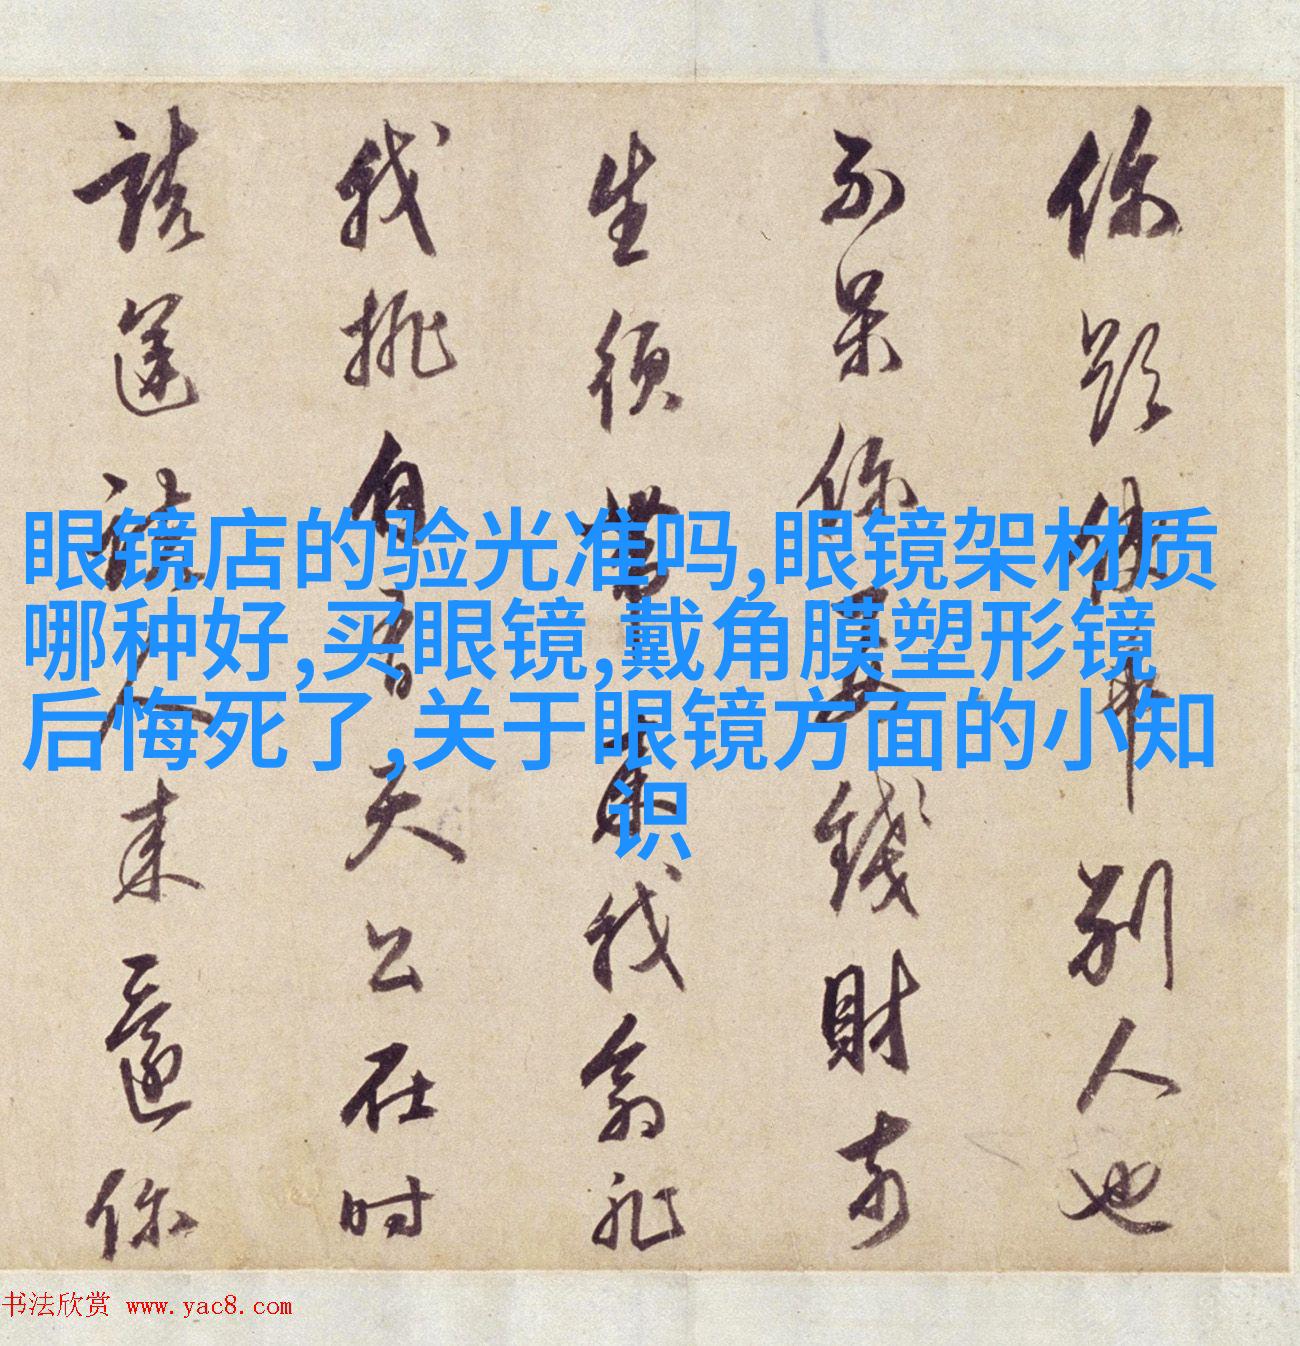 你 别人也
不呆你 钱财
生须 我翁非
我挑自 天公在时
这 人来还你
眼镜店的验光准吗,眼镜架材质
哪种好,买眼镜,戴角膜塑形镜
后悔死了,关于眼镜方面的小知
识
书法欣赏 www.yac8.com